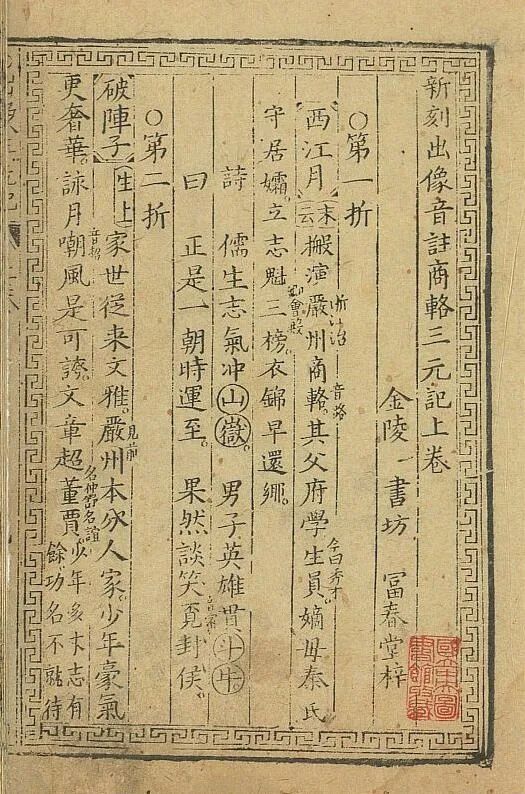 新刻出像音註商輅三元記上卷
金陵 書坊 冨春堂梓
○第一折
西江月 末云 搬演嚴州商輅其父府學生員嫡母秦氏
浙江治 音路 今曰秀才
守居孀立志魁三榜衣錦早還鄉
詩 儒生志氣冲山嶽 男子英雄貫斗牛
曰 正是一朝時運至 果然談笑覓封侯
○第二折
破陣子 生上 家世從來文雅嚴州本分人家少年豪氣
見前
更奢華詠月嘲風是可誇文章超董賈少年多才志有
名仲舒名誼
餘功名不就待
國立北